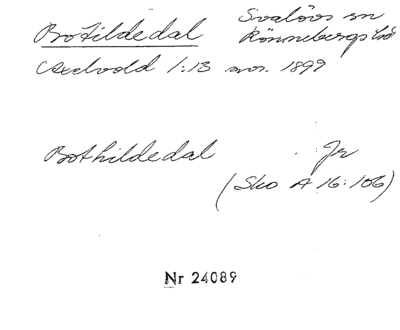 Botildedal Svalövs sn
Rönnebergs hd
Axelvold 1:13 avs. 1899
Bothildedal Jr
(Sko A 16:106)
Nr 24089